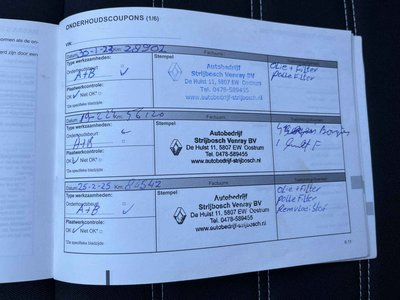 ONDERHOUDSCOUPONS (1/6)
VIN:
Datum: 30-1-23 Km:
Factuurnr.:
Type werkzaamheden:
Stempel
Onderhoudsbeurt
A+B ✓
Olie + Filter
Polle Filter
Autobedrijf
Strijbosch Venray BV
De Hulst 11, 5807 EW Oostrum
Tel. 0478-589455
www.autobedrijf-strijbosch.nl
Plaatwerkcontrole:
OK ✓ Niet OK*
*Zie specifieke bladzijde
Datum:
Km:
Factuurnr.:
Type werkzaamheden:
Stempel
Onderhoudsbeurt
A+B
Autobedrijf
Strijbosch Venray BV
De Hulst 11, 5807 EW Oostrum
Tel. 0478-589455
www.autobedrijf-strijbosch.nl
Plaatwerkcontrole:
OK ✓ Niet OK*
*Zie specifieke bladzijde
Datum: 25-2-25 Km:
Factuurnr.:
Type werkzaamheden:
Stempel
Onderhoudsbeurt
A+B ✓
Olie + Filter
Pollefilter
Remvloeistof
Autobedrijf
Strijbosch Venray BV
De Hulst 11, 5807 EW Oostrum
Tel. 0478-589455
www.autobedrijf-strijbosch.nl
Plaatwerkcontrole:
OK ✓ Niet OK*
*Zie specifieke bladzijde
6.11